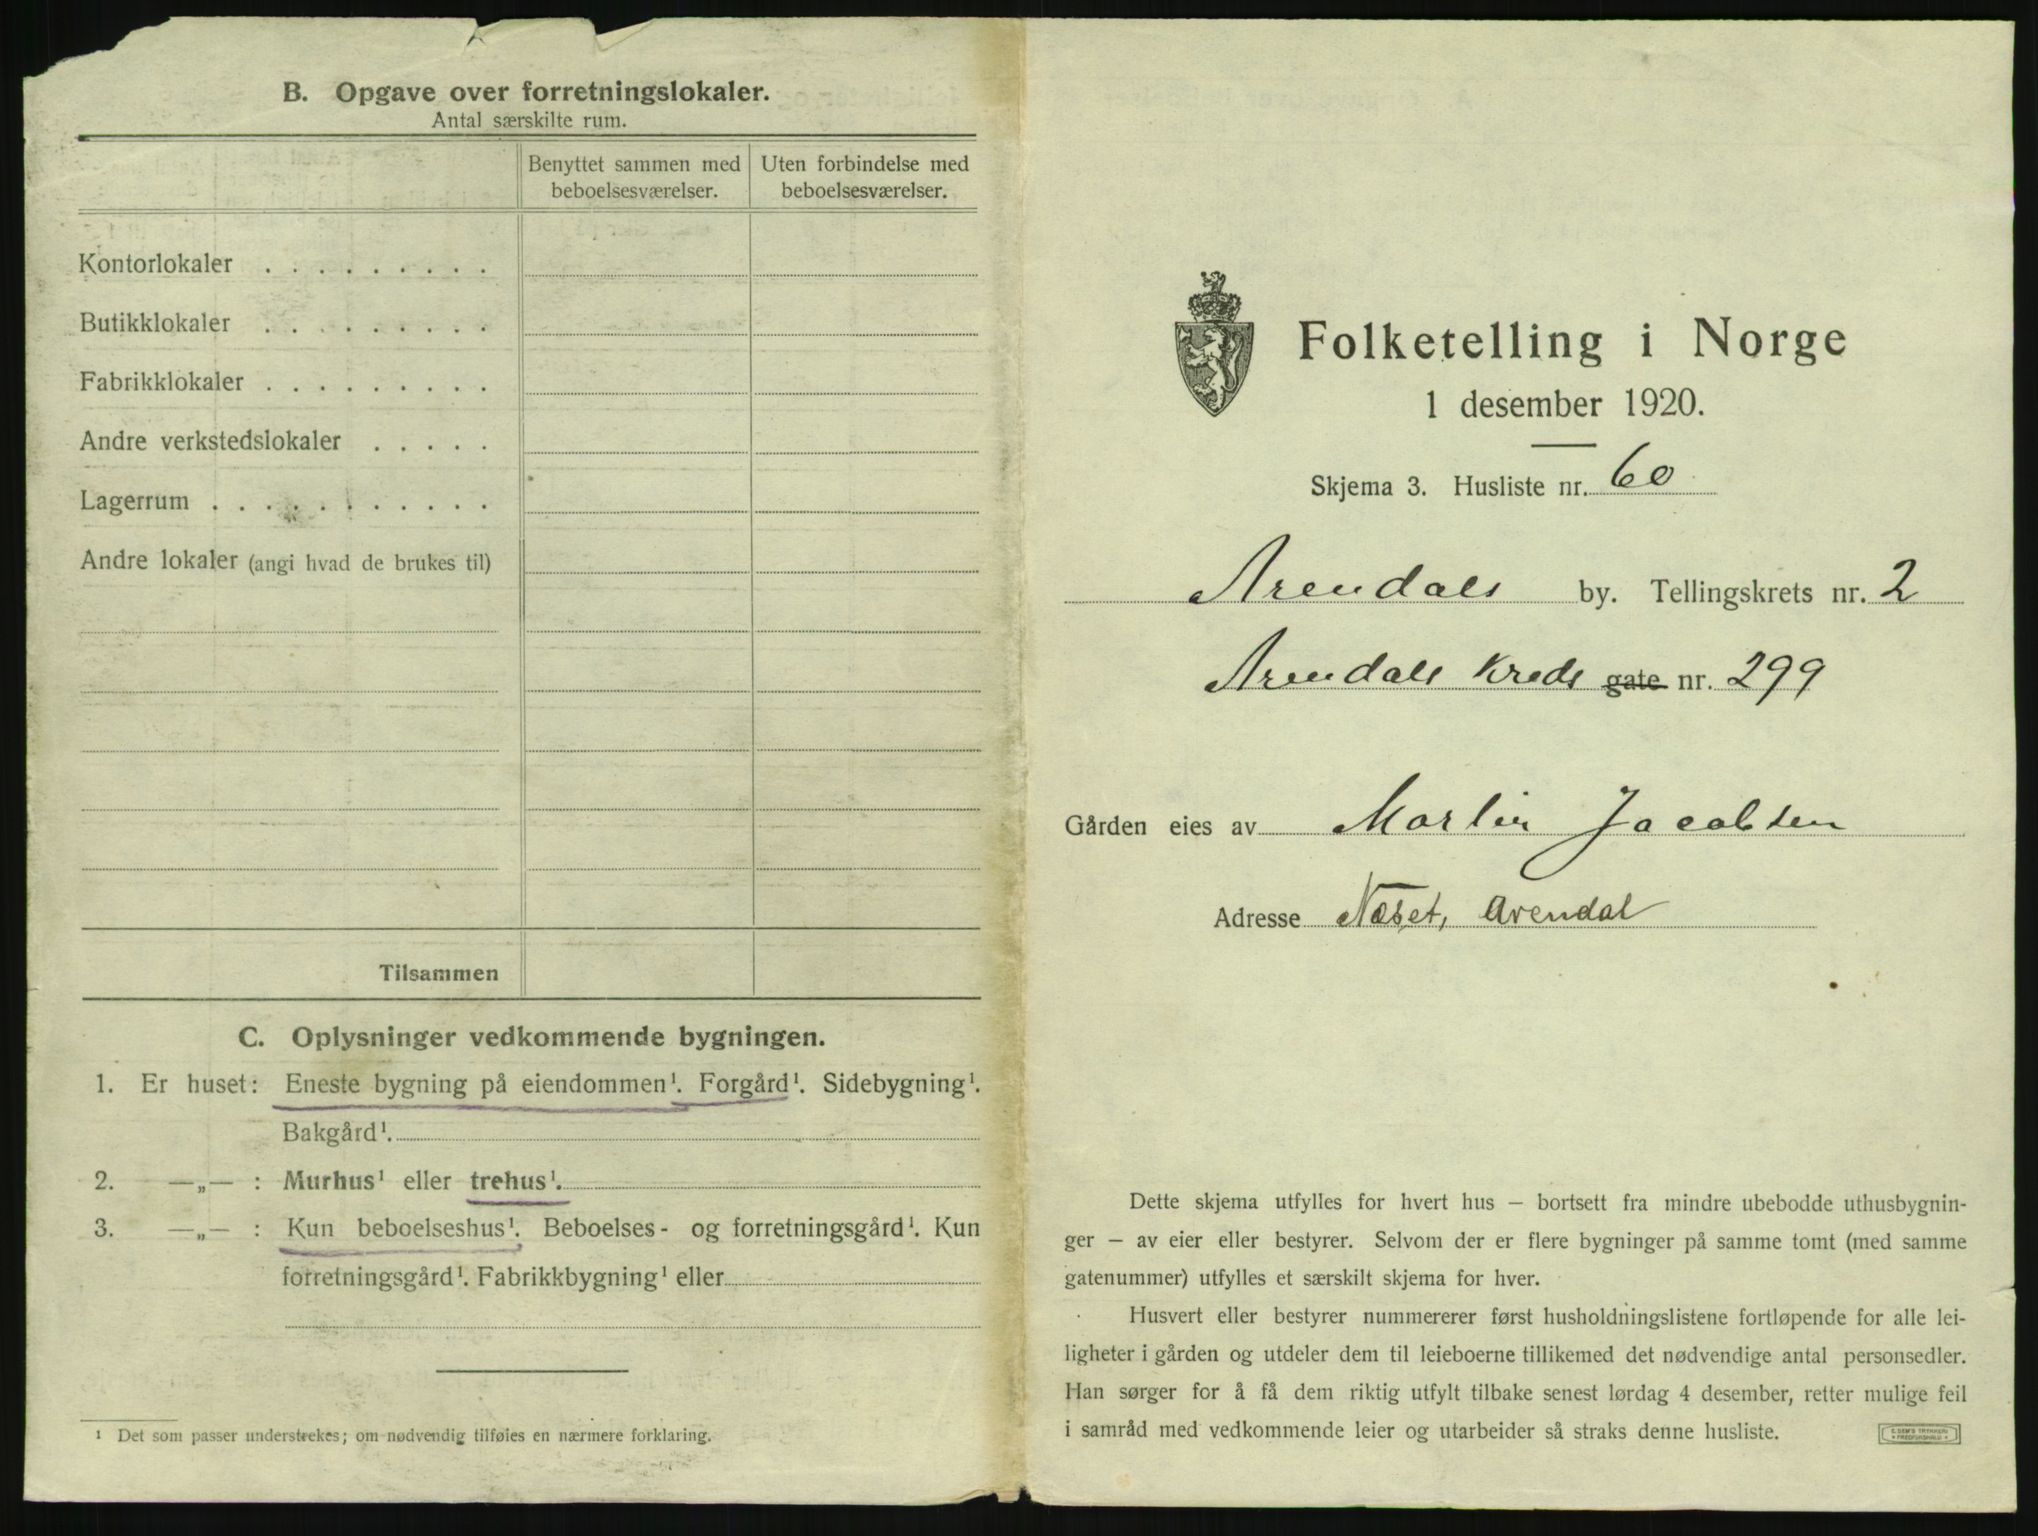 B. Opgave over forretningslokaler.
Antal særskilte rum.
Benyttet sammen med beboelsesværelser.
Uten forbindelse med beboelsesværelser.
Kontorlokaler . . . . . . . . .
Butikklokaler . . . . . . . . .
Fabrikklokaler . . . . . . . . .
Andre verkstedslokaler . . . . .
Lagerrum . . . . . . . . . . .
Andre lokaler (angi hvad de brukes til)
Tilsammen
C. Oplysninger vedkommende bygningen.
1. Er huset: Eneste bygning på eiendommen¹. Forgård¹. Sidebygning¹.
Bakgård¹.
2. —„— : Murhus¹ eller trehus¹.
3. —„— : Kun beboelseshus¹. Beboelses- og forretningsgård¹. Kun
forretningsgård¹. Fabrikkbygning¹ eller
¹ Det som passer understrekes; om nødvendig tilføies en nærmere forklaring.
Folketelling i Norge
1 desember 1920.
Skjema 3. Husliste nr. 60
Arendals by. Tellingskrets nr. 2
Arendals Kreds gate nr. 299
Gården eies av Martin Jacobsen
Adresse Næset, Arendal
Dette skjema utfylles for hvert hus – bortsett fra mindre ubebodde uthusbygnin-
ger – av eier eller bestyrer. Selvom der er flere bygninger på samme tomt (med samme
gatenummer) utfylles et særskilt skjema for hver.
Husvert eller bestyrer nummererer først husholdningslistene fortløpende for alle lei-
ligheter i gården og utdeler dem til leieboerne tillikemed det nødvendige antal personsedler.
Han sørger for å få dem riktig utfylt tilbake senest lørdag 4 desember, retter mulige feil
i samråd med vedkommende leier og utarbeider så straks denne husliste.